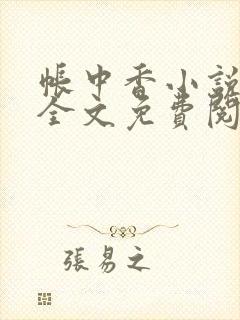 帳中香小說
全文免費閱
張易之